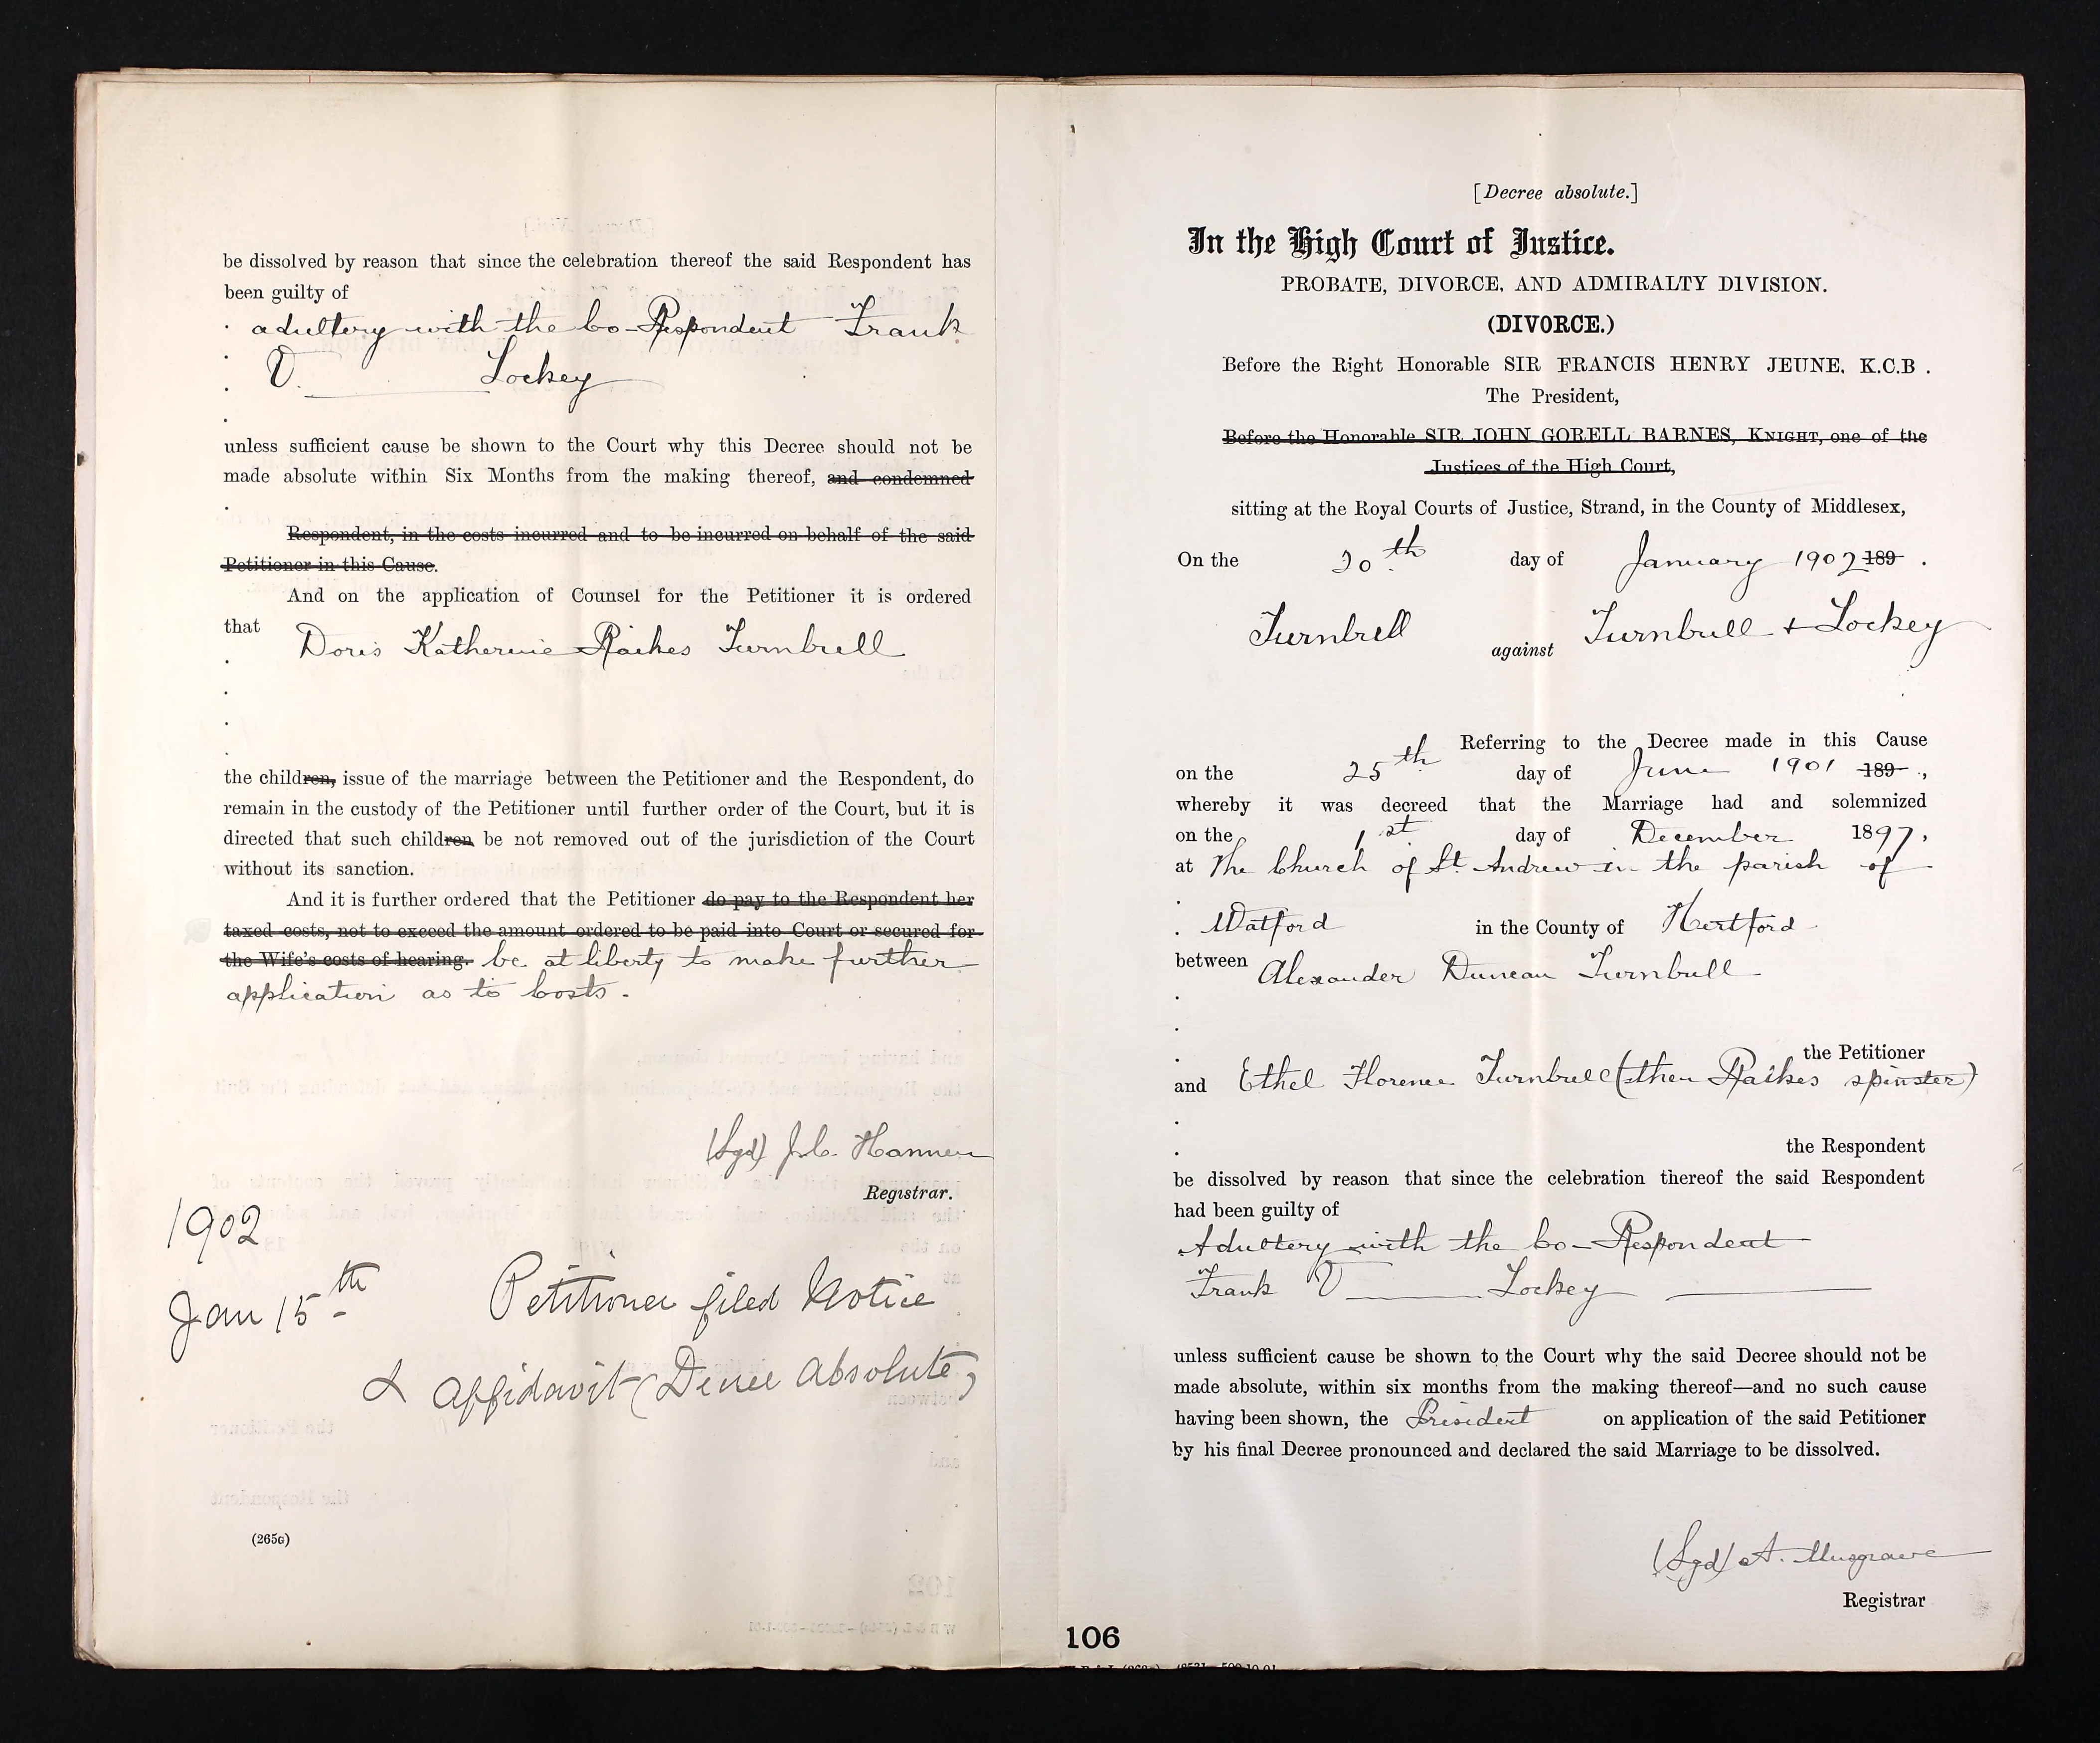 be dissolved by reason that since the celebration thereof the said Respondent has
been guilty of
adultery with the Co-Respondent Frank
V. Lockey
unless sufficient cause be shown to the Court why this Decree should not be
made absolute within Six Months from the making thereof, and condemned
Respondent, in the costs incurred and to be incurred on behalf of the said
Petitioner in this Cause.
And on the application of Counsel for the Petitioner it is ordered
that Doris Katherine Raikes Turnbull
the children, issue of the marriage between the Petitioner and the Respondent, do
remain in the custody of the Petitioner until further order of the Court, but it is
directed that such children be not removed out of the jurisdiction of the Court
without its sanction.
And it is further ordered that the Petitioner do pay to the Respondent her
taxed costs, not to exceed the amount ordered to be paid into Court or secured for
the Wife's costs of hearing. be at liberty to make further
application as to Costs.
(Sgd) J.C. Hannen
Registrar.
1902
Jan 15th Petitioner filed Notice
& Affidavit (Decree Absolute)
(265G)
[Decree absolute.]
In the High Court of Justice.
PROBATE, DIVORCE, AND ADMIRALTY DIVISION.
(DIVORCE.)
Before the Right Honorable SIR FRANCIS HENRY JEUNE, K.C.B.
The President,
Before the Honorable SIR JOHN GORELL BARNES, KNIGHT, one of the
Justices of the High Court,
sitting at the Royal Courts of Justice, Strand, in the County of Middlesex,
On the 20th day of January 1902 189 .
Turnbull against Turnbull & Lockey
Referring to the Decree made in this Cause
on the 25th day of June 1901 189 .,
whereby it was decreed that the Marriage had and solemnized
on the 1st day of December 1897,
at The Church of St. Andrew in the parish of
Watford in the County of Hertford
between Alexander Duncan Turnbull
the Petitioner
and Ethel Florence Turnbull (then Raikes spinster)
the Respondent
be dissolved by reason that since the celebration thereof the said Respondent
had been guilty of
Adultery with the Co-Respondent
Frank V Lockey
unless sufficient cause be shown to the Court why the said Decree should not be
made absolute, within six months from the making thereof—and no such cause
having been shown, the President on application of the said Petitioner
by his final Decree pronounced and declared the said Marriage to be dissolved.
(Sgd) A. Musgrave
Registrar
106